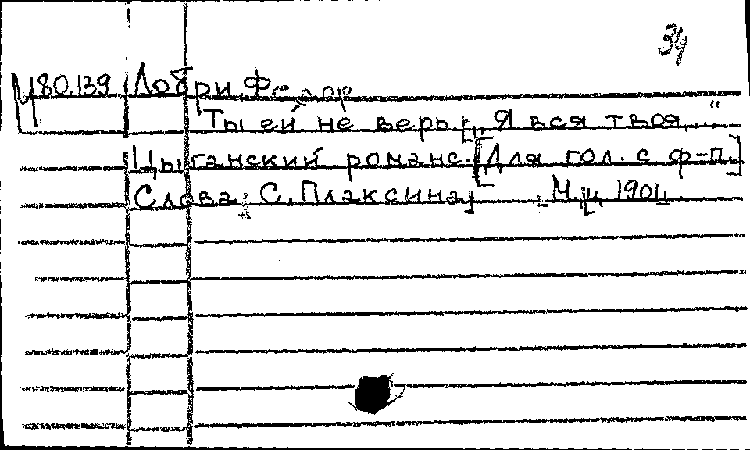 34
М80.139 Лобри, Федор
"Ты ей не верь["], "Я вся твоя..."
Цыганский романс. [Для гол. с ф-п.]
Слова: С. Плаксина] М., ц. 1904